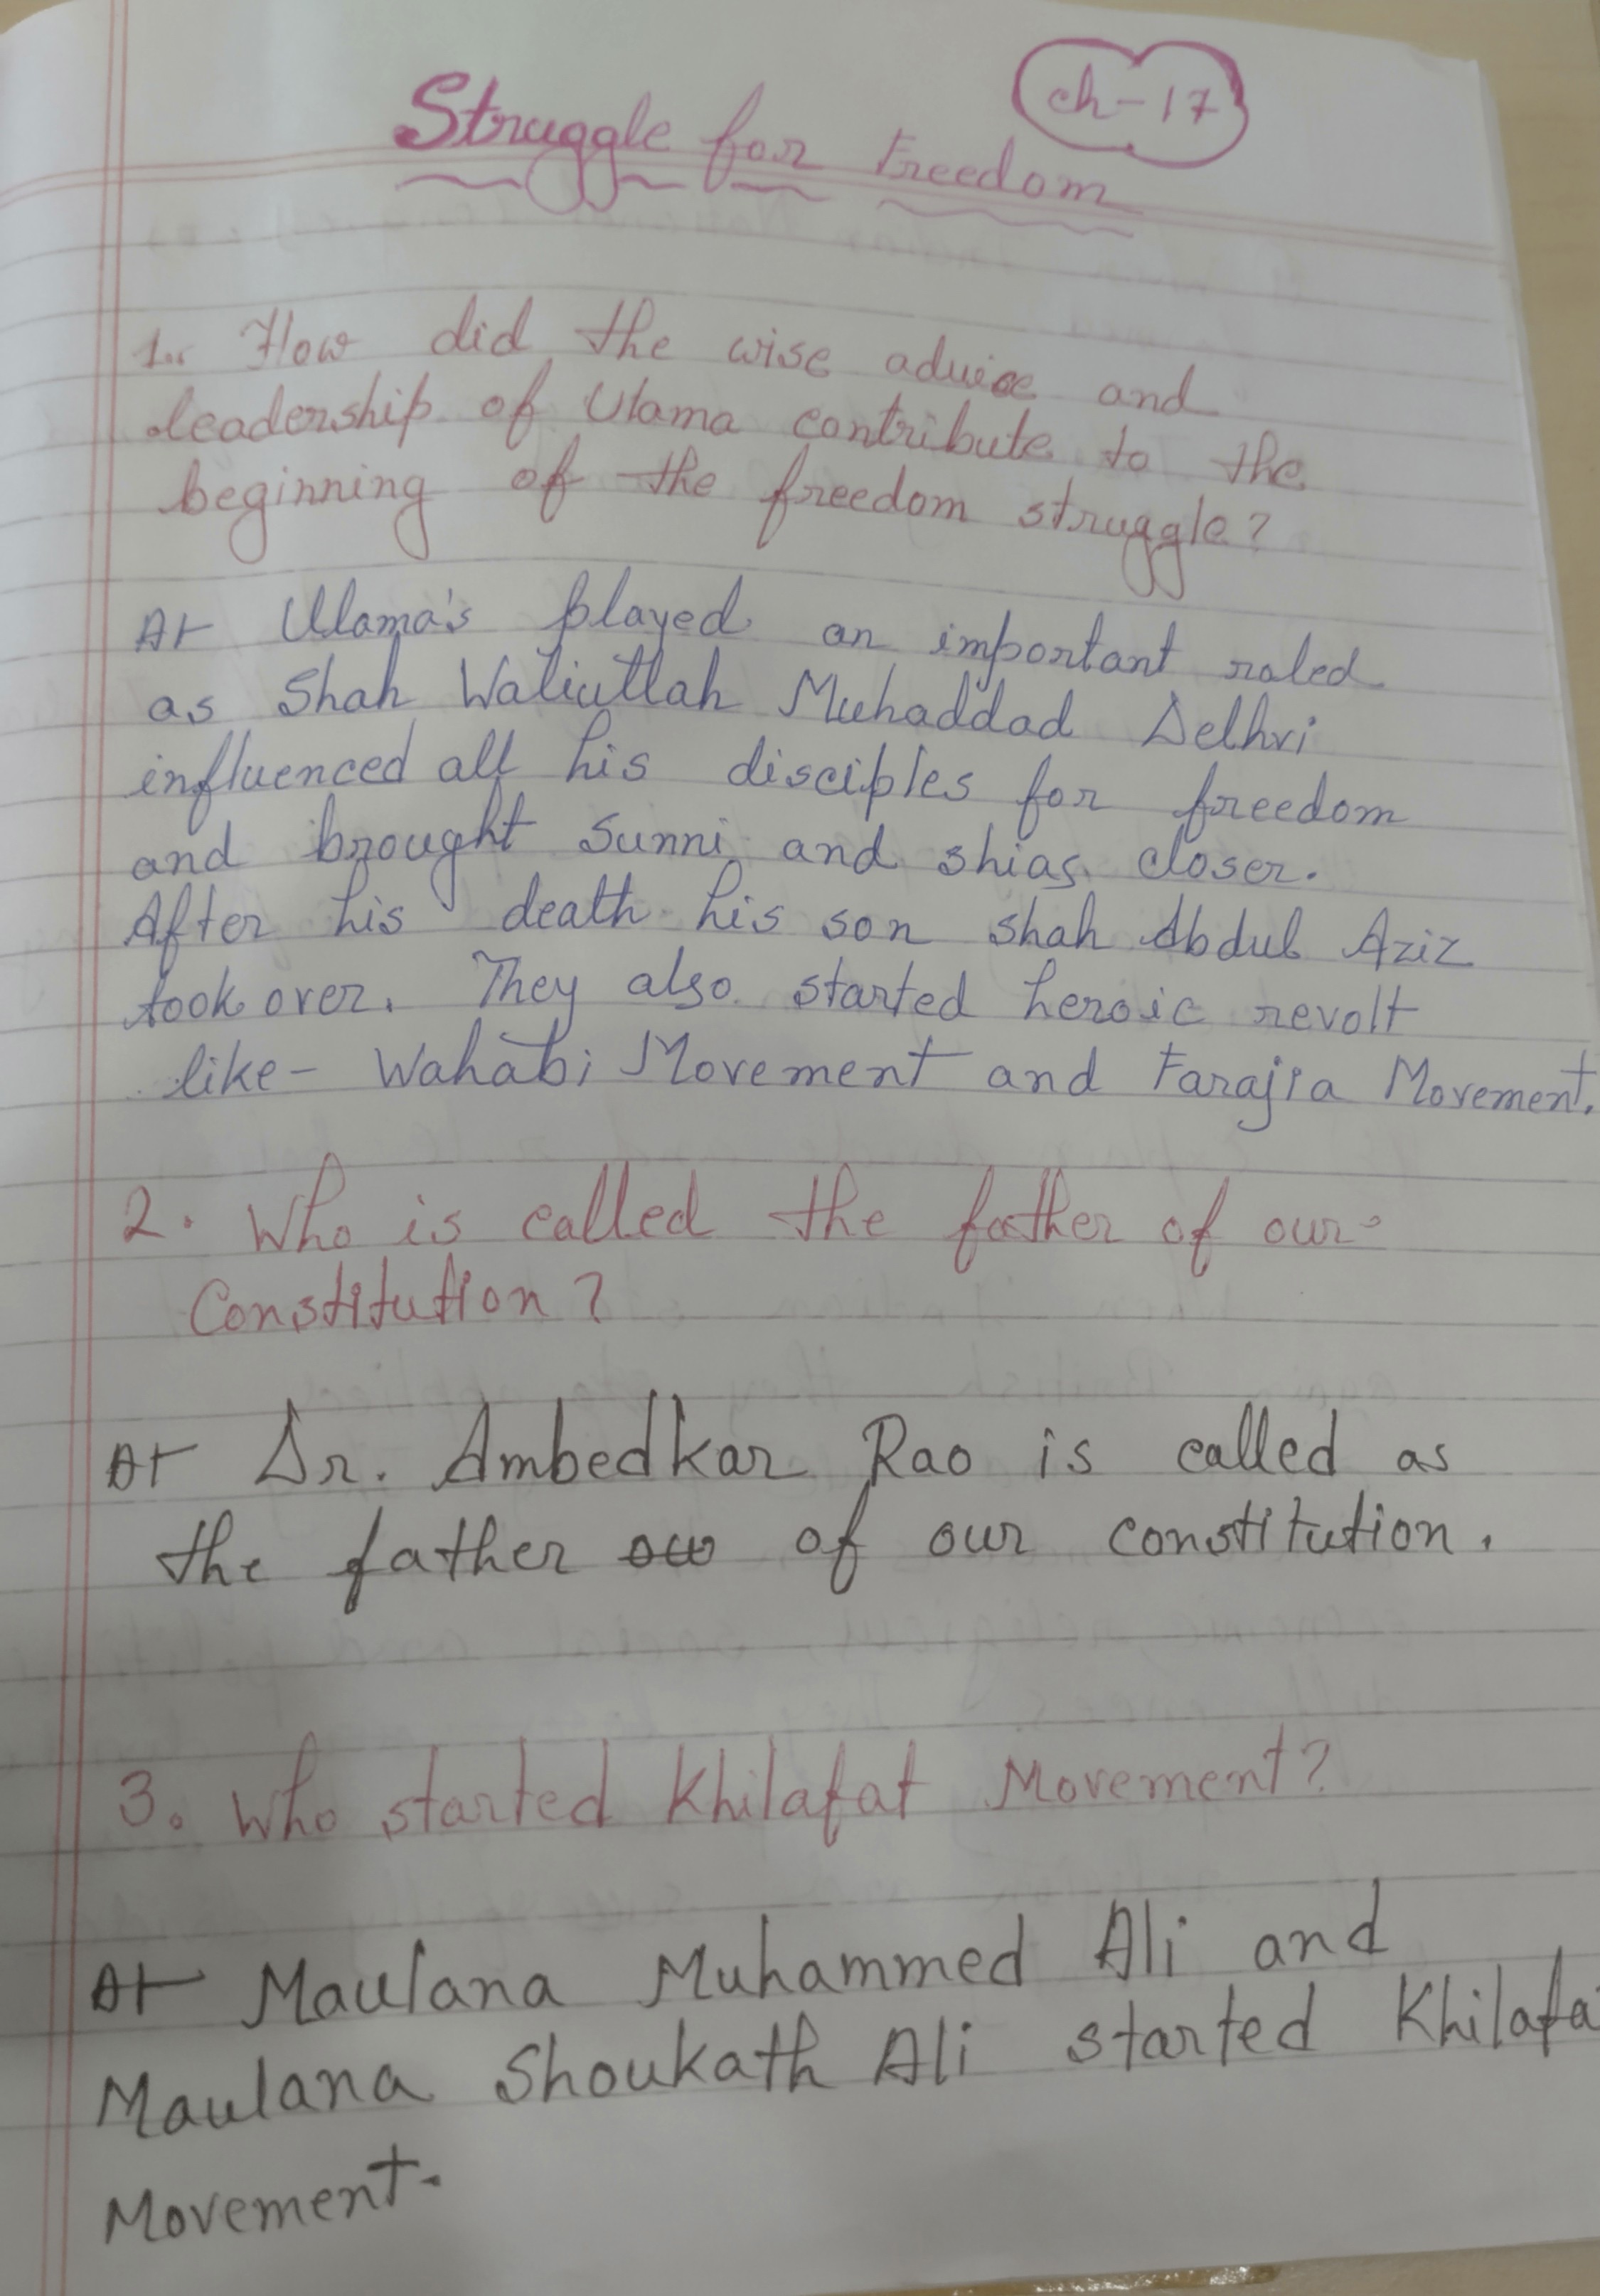 ch-17
Struggle for Freedom
1. How did the wise advice and
leadership of Ulama contribute to the
beginning of the freedom struggle?
A+ Ulama's played an important roled
as Shah Waliullah Muhaddad Delhvi
influenced all his disciples for freedom
and brought Sunni and shias closer.
After his death his son shah Abdul Aziz
took over. They also started heroic revolt
like- Wahabi Movement and Farajia Movement.
2. Who is called the father of our
Constitution?
A+ Dr. Ambedkar Rao is called as
the father of our constitution.
3. Who started Khilafat Movement?
A+ Maulana Muhammed Ali and
Maulana Shoukath Ali started Khilafa
Movement.